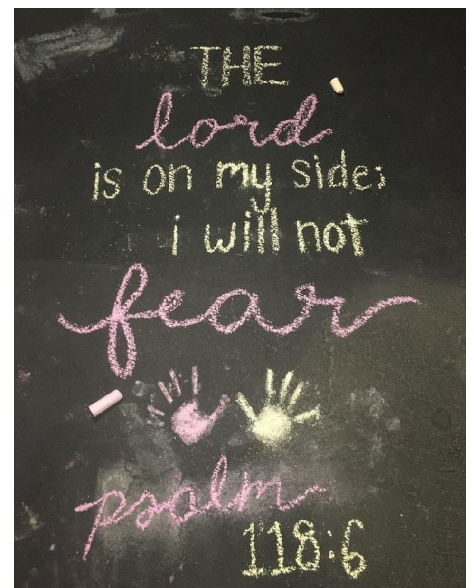 THE
lord
is on my side;
i will not
fear
psalm
118:6